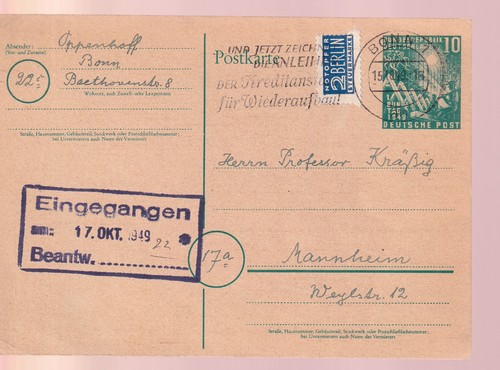 Absender:
(Vor- und Zuname)
Oppenhoff
Bonn
22c
Beethovenstr. 8
Wohnort, auch Zustell- oder Leitpostamt
Straße, Hausnummer, Gebäudeteil, Stockwerk oder Postschließfachnummer;
bei Untermietern auch Name des Vermieters
Postkarte
UND JETZT ZEICHN
DIE ANLEIHE
DER Kreditanst
für Wiederaufbau!
NOTOPFER
2 BERLIN
STEUERMARKE
BONN 1
BUNDESREPUBLIK
DEUTSCHLAND
10
1.
BUNDES
TAG
1949
DEUTSCHE POST
Herrn Professor Kräßig
Eingegangen
am: 17. OKT. 1949
22
Beantw.
17a
Mannheim
Weylstr. 12
Straße, Hausnummer, Gebäudeteil, Stockwerk oder Postschließfachnummer;
bei Untermietern auch Name des Vermieters